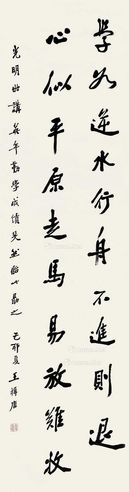 學如逆水行舟不進則退
心似平原走馬易放難收
光明世講英年勤學成績斐然 勗之 己卯夏王